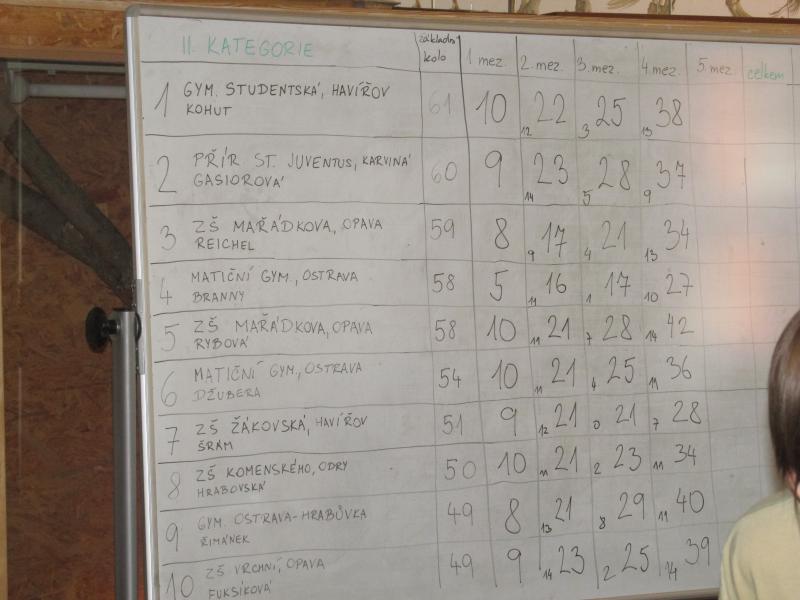 II. KATEGORIE základní kolo 1 mez. 2. mez. 3. mez. 4. mez. 5. mez. celkem
1 GYM. STUDENTSKÁ, HAVÍŘOV 61 10 12 22 3 25 13 38
KOHUT
2 PŘÍR ST. JUVENTUS, KARVINÁ 60 9 14 23 5 28 9 37
GASIOROVÁ
3 ZŠ MAŘÁDKOVA, OPAVA 59 8 9 17 4 21 13 34
REICHEL
4 MATIČNÍ GYM., OSTRAVA 58 5 11 16 1 17 10 27
BRANNY
5 ZŠ MAŘÁDKOVA, OPAVA 58 10 11 21 7 28 14 42
RYBOVÁ
6 MATIČNÍ GYM., OSTRAVA 54 10 11 21 4 25 11 36
DŽUBERA
7 ZŠ ŽÁKOVSKÁ, HAVÍŘOV 51 9 12 21 0 21 7 28
ŠRÁM
8 ZŠ KOMENSKÉHO, ODRY 50 10 11 21 2 23 11 34
HRABOVSKÁ
9 GYM. OSTRAVA-HRABŮVKA 49 8 13 21 8 29 11 40
ŘIMÁNEK
10 ZŠ VRCHNÍ, OPAVA 49 9 14 23 2 25 14 39
FUKSÍKOVÁ